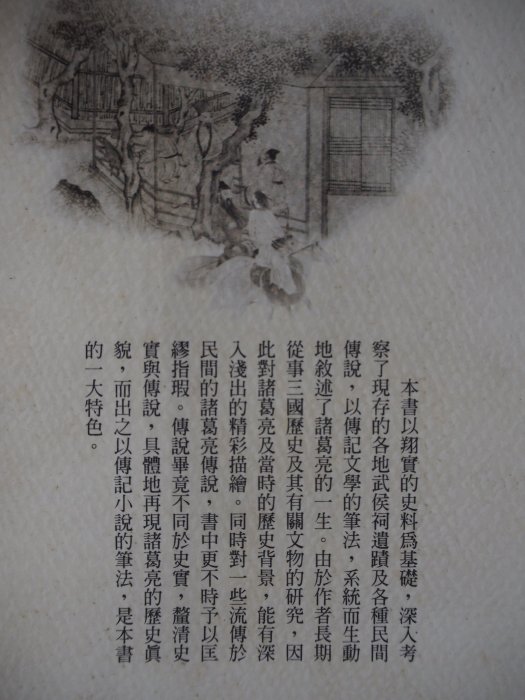 本書以翔實的史料爲基礎，深入考
察了現存的各地武侯祠遺蹟及各種民間
傳說，以傳記文學的筆法，系統而生動
地敘述了諸葛亮的一生。由於作者長期
從事三國歷史及其有關文物的研究，因
此對諸葛亮及當時的歷史背景，能有深
入淺出的精彩描繪。同時對一些流傳於
民間的諸葛亮傳說，書中更不時予以匡
繆指瑕。傳說畢竟不同於史實，釐清史
實與傳說，具體地再現諸葛亮的歷史眞
貌，而出之以傳記小說的筆法，是本書
的一大特色。